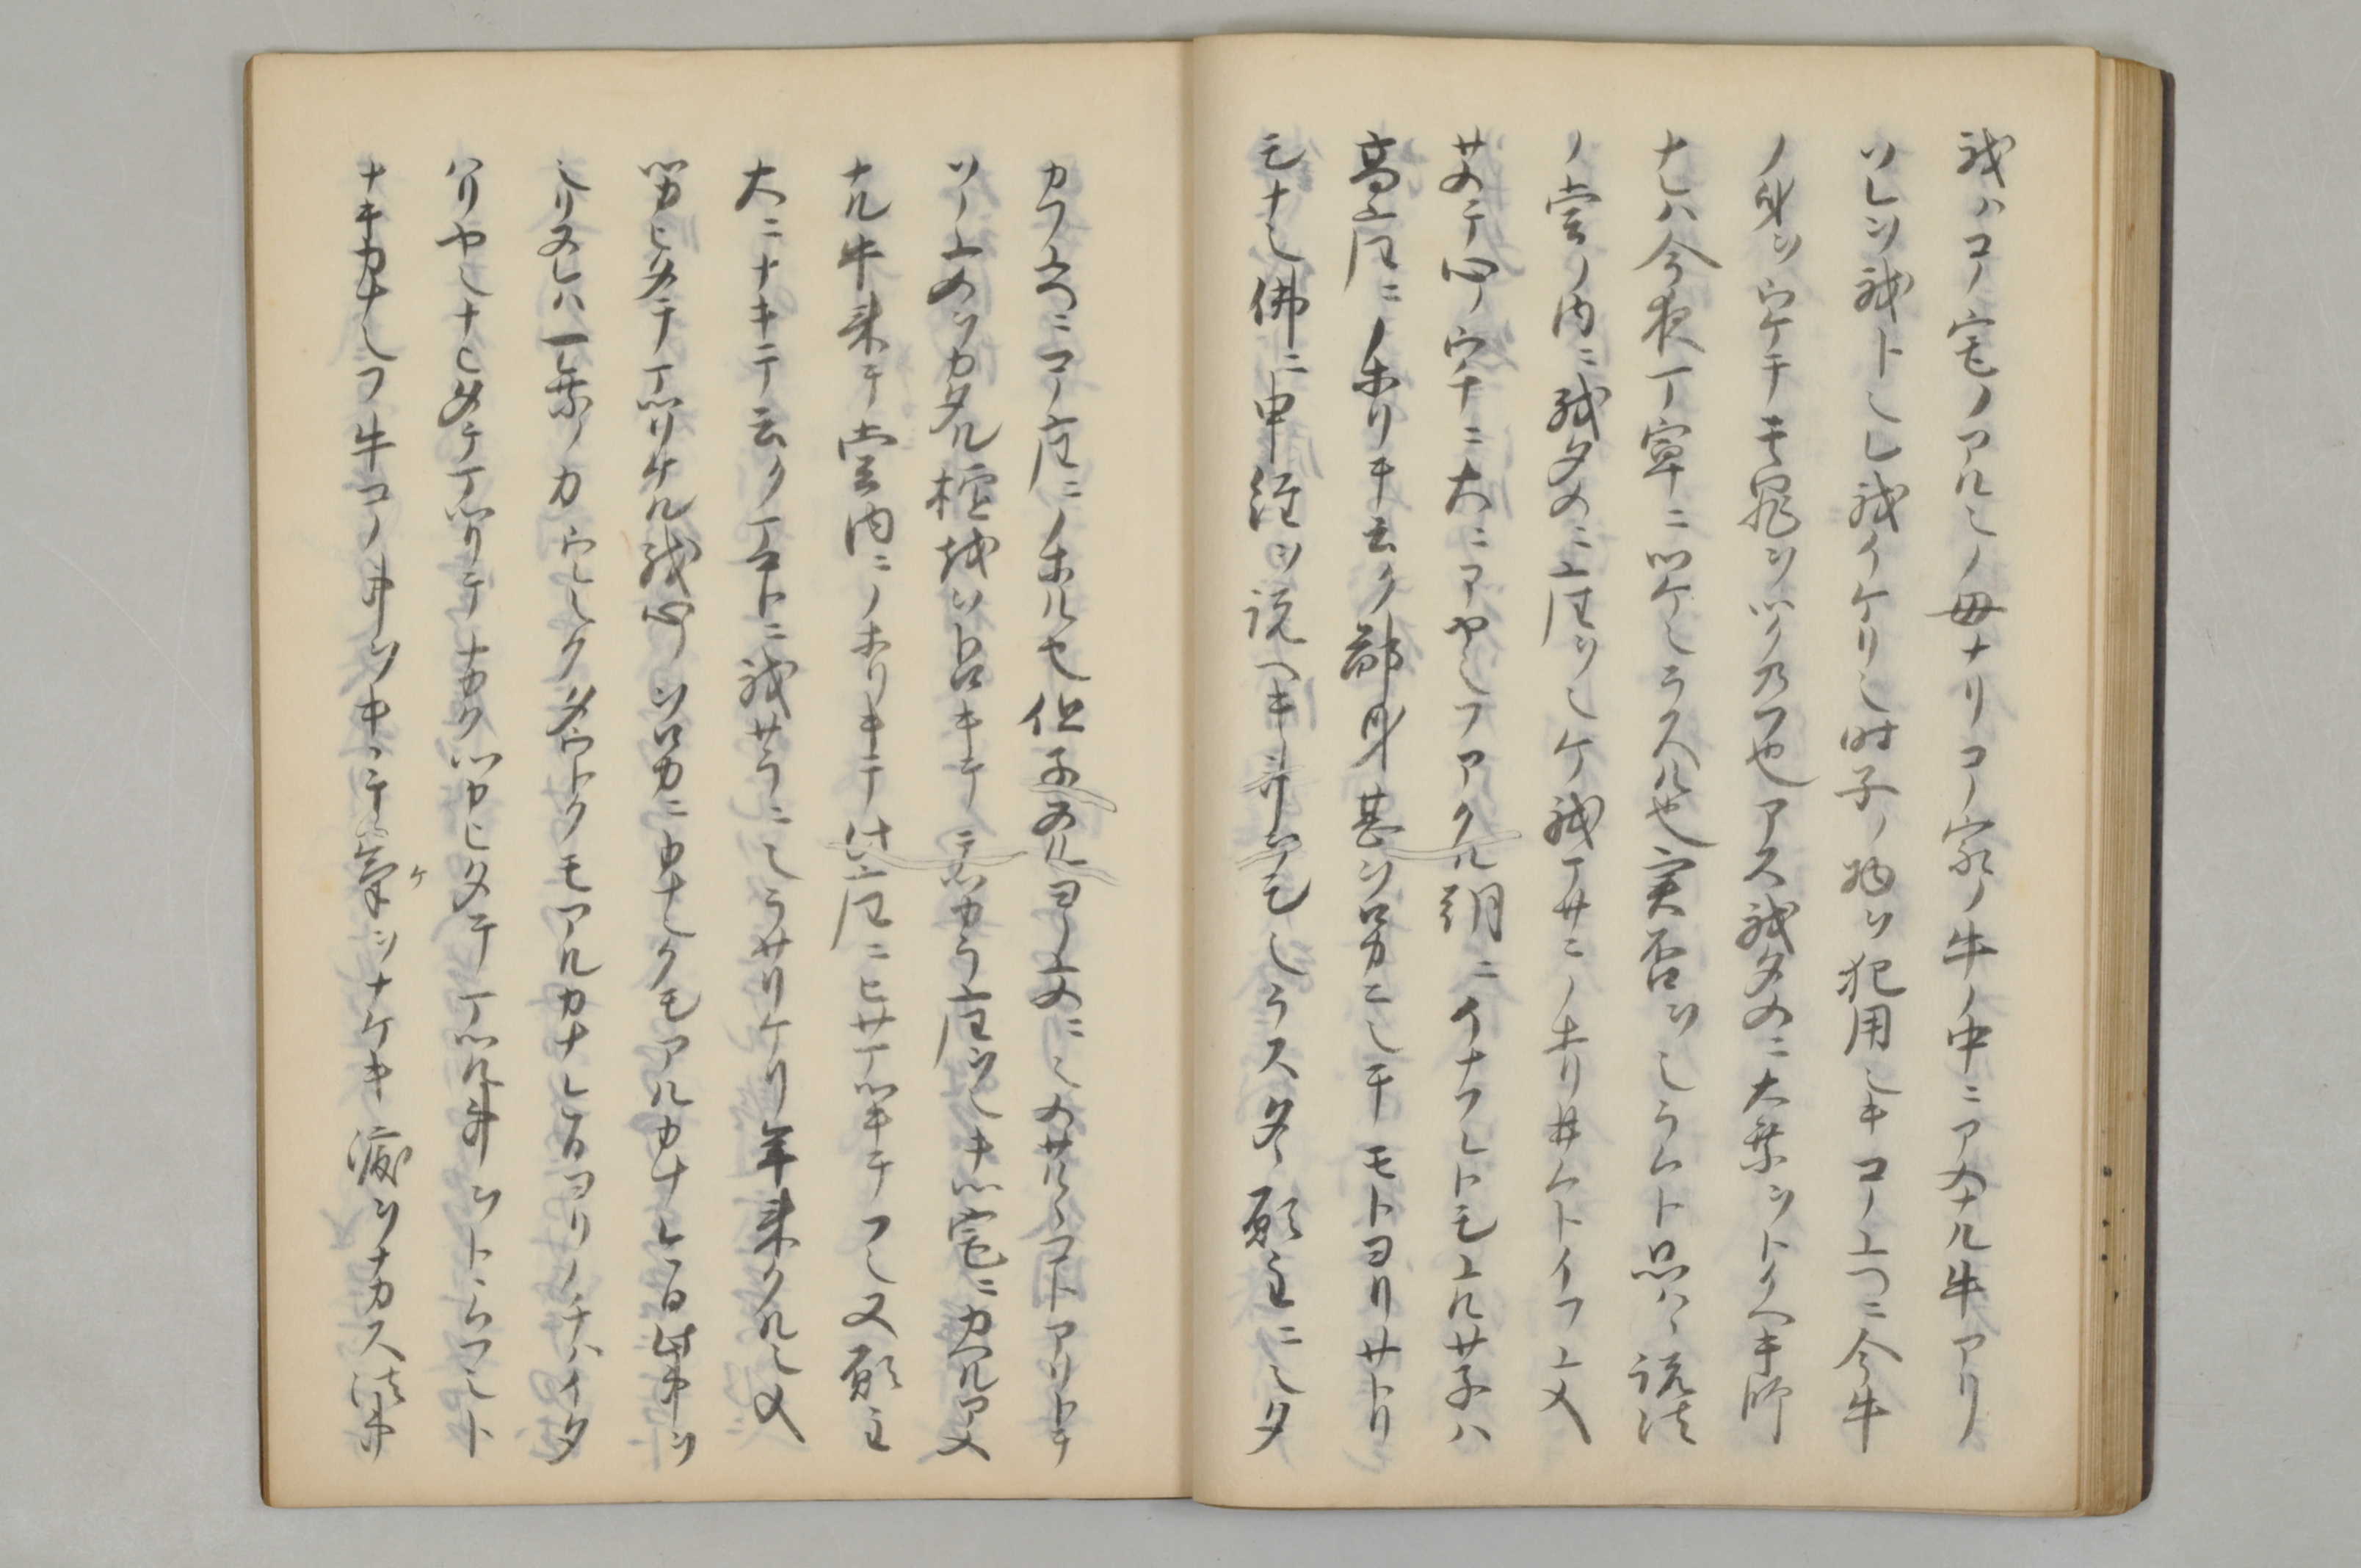 我ハコノ宅ノアルシノ母ナリコノ家ノ牛ノ中ニアメナル牛アリ
ソレソ我トシレ我イケリシ時子ノ物ヲ犯用シキコノユヘニ今牛
ノ身ヲウケテモ罪ヲツクノフ也アス我タメニ大乗ヲトクヘキ師
ナレハ今夜丁寧ニツケシラスル也実否ヲシラムト思ハヽ説法
ノ堂ノ内ニ我タメニ座ヲシケ我マサニノホリヰムトイフユメ
サメテ心ノウチニ大ニアヤシフアクル朝ニイナフレトモユルサ子ハ
高座ニノホリヰテ云ク鄙身甚ヲロカニシテモトヨリサトリ
モナシ佛ニ申経ヲ説ヘキモシラスタヽ願主ニシタ
カフユヘニコノ座ニノホル也但子タルヨノユメニシメサルヽコトアリトテ
ソノユメヲカタル檀越ヲトロキテミツカラ座ヲシキ宅ニカヘルアメ
ナル牛来テ堂内ニノホリキテ此座ニヒサマツキテフシヌ願主
大ニナキテ云クマコトニ我サラニシラサリケリ年来クルシメ
ツカヒタテマツリケル我心ヲロカニカナシクモアルカナ今日此事ヲ
シリヌレハ一乗ノカウシクタウトクモアルカナ今日ヨリノチハイタ
ハリヤシナヒタテマツリテナカクツカヒタテマツル事ヲトヽムヘシト
ナキカナシフ牛コノ事ヲキヽテ気ヲナケキ涙ヲナカス法事